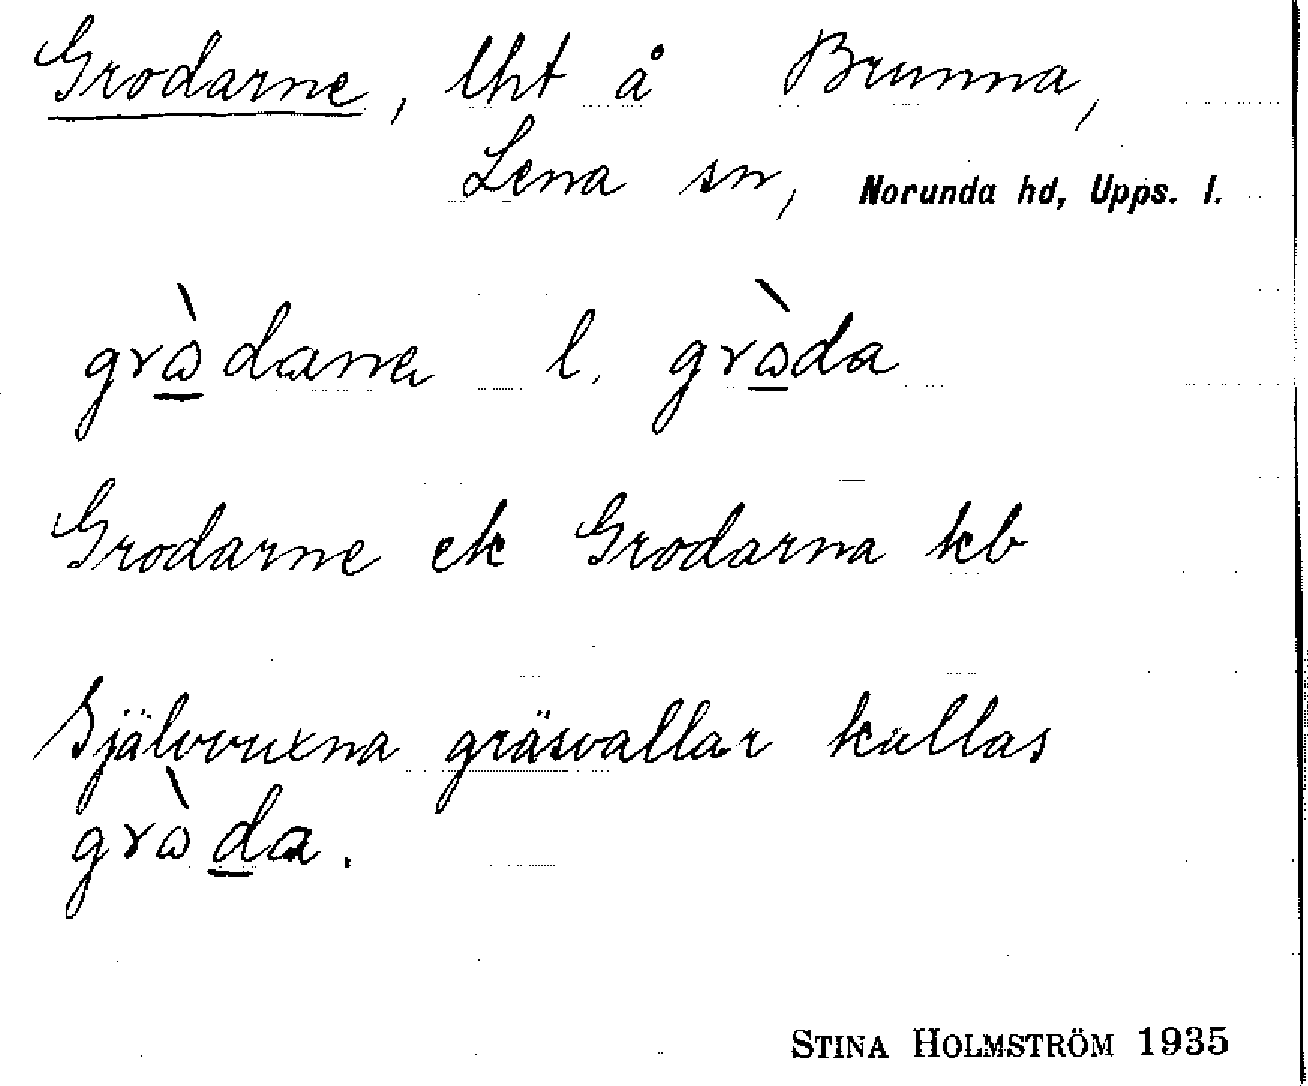 Grodarne, lht å Brunna,
Lena sn, Norunda hd, Upps. l.
grɷ̀dana l. grɷ̀da
Grodarne ek Grodarna kb
Självvuxna gräsvallar kallas
grɷ̀da.
STINA HOLMSTRÖM 1935